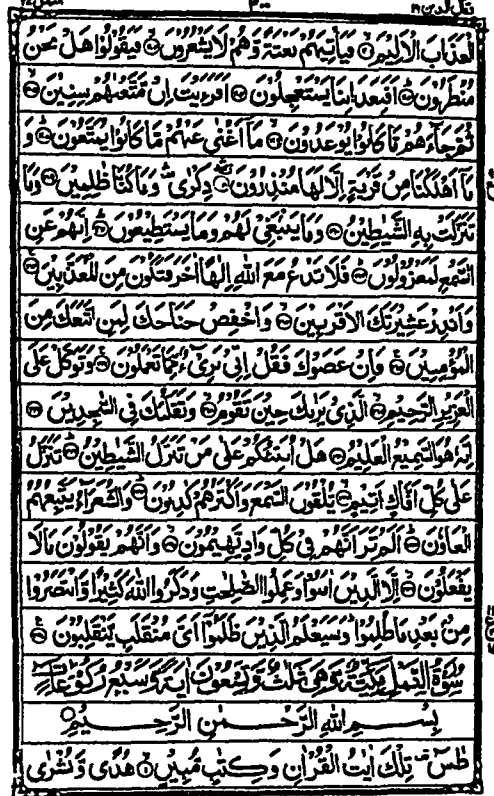 وقال الذين ١٩ ٣٠٠
الْعَذَابَ الْاَلِيْمَ فَيَاْتِيَهُمْ بَغْتَةً وَّهُمْ لَا يَشْعُرُوْنَ فَيَقُوْلُوْا هَلْ نَحْنُ
مُنْظَرُوْنَ اَفَبِعَذَابِنَا يَسْتَعْجِلُوْنَ اَفَرَءَيْتَ اِنْ مَّتَّعْنٰهُمْ سِنِيْنَ
ثُمَّ جَآءَهُمْ مَّا كَانُوْا يُوْعَدُوْنَ مَآ اَغْنٰى عَنْهُمْ مَّا كَانُوْا يُمَتَّعُوْنَ وَ
مَآ اَهْلَكْنَا مِنْ قَرْيَةٍ اِلَّا لَهَا مُنْذِرُوْنَ ذِكْرٰى وَمَا كُنَّا ظٰلِمِيْنَ وَمَا
تَنَزَّلَتْ بِهِ الشَّيٰطِيْنُ وَمَا يَنْۢبَغِيْ لَهُمْ وَمَا يَسْتَطِيْعُوْنَ اِنَّهُمْ عَنِ
السَّمْعِ لَمَعْزُوْلُوْنَ فَلَا تَدْعُ مَعَ اللّٰهِ اِلٰهًا اٰخَرَ فَتَكُوْنَ مِنَ الْمُعَذَّبِيْنَ
وَاَنْذِرْ عَشِيْرَتَكَ الْاَقْرَبِيْنَ وَاخْفِضْ جَنَاحَكَ لِمَنِ اتَّبَعَكَ مِنَ
الْمُؤْمِنِيْنَ فَاِنْ عَصَوْكَ فَقُلْ اِنِّيْ بَرِيْٓءٌ مِّمَّا تَعْمَلُوْنَ وَتَوَكَّلْ عَلَى
الْعَزِيْزِ الرَّحِيْمِ الَّذِيْ يَرٰىكَ حِيْنَ تَقُوْمُ وَتَقَلُّبَكَ فِي السّٰجِدِيْنَ
اِنَّهٗ هُوَ السَّمِيْعُ الْعَلِيْمُ هَلْ اُنَبِّئُكُمْ عَلٰى مَنْ تَنَزَّلُ الشَّيٰطِيْنُ تَنَزَّلُ
عَلٰى كُلِّ اَفَّاكٍ اَثِيْمٍ يُّلْقُوْنَ السَّمْعَ وَاَكْثَرُهُمْ كٰذِبُوْنَ وَالشُّعَرَآءُ يَتَّبِعُهُمُ
الْغَاوٗنَ اَلَمْ تَرَ اَنَّهُمْ فِيْ كُلِّ وَادٍ يَّهِيْمُوْنَ وَاَنَّهُمْ يَقُوْلُوْنَ مَا لَا
يَفْعَلُوْنَ اِلَّا الَّذِيْنَ اٰمَنُوْا وَعَمِلُوا الصّٰلِحٰتِ وَذَكَرُوا اللّٰهَ كَثِيْرًا وَّانْتَصَرُوْا
مِنْۢ بَعْدِ مَا ظُلِمُوْا وَسَيَعْلَمُ الَّذِيْنَ ظَلَمُوْٓا اَيَّ مُنْقَلَبٍ يَّنْقَلِبُوْنَ
سُوْرَةُ النَّمْلِ مَكِّيَّةٌ وَّهِيَ ثَلٰثٌ وَّتِسْعُوْنَ اٰيَةً وَّسَبْعُ رُكُوْعَاتٍ
بِسْمِ اللّٰهِ الرَّحْمٰنِ الرَّحِيْمِ
طٰسٓ تِلْكَ اٰيٰتُ الْقُرْاٰنِ وَكِتَابٍ مُّبِيْنٍ هُدًى وَّبُشْرٰى